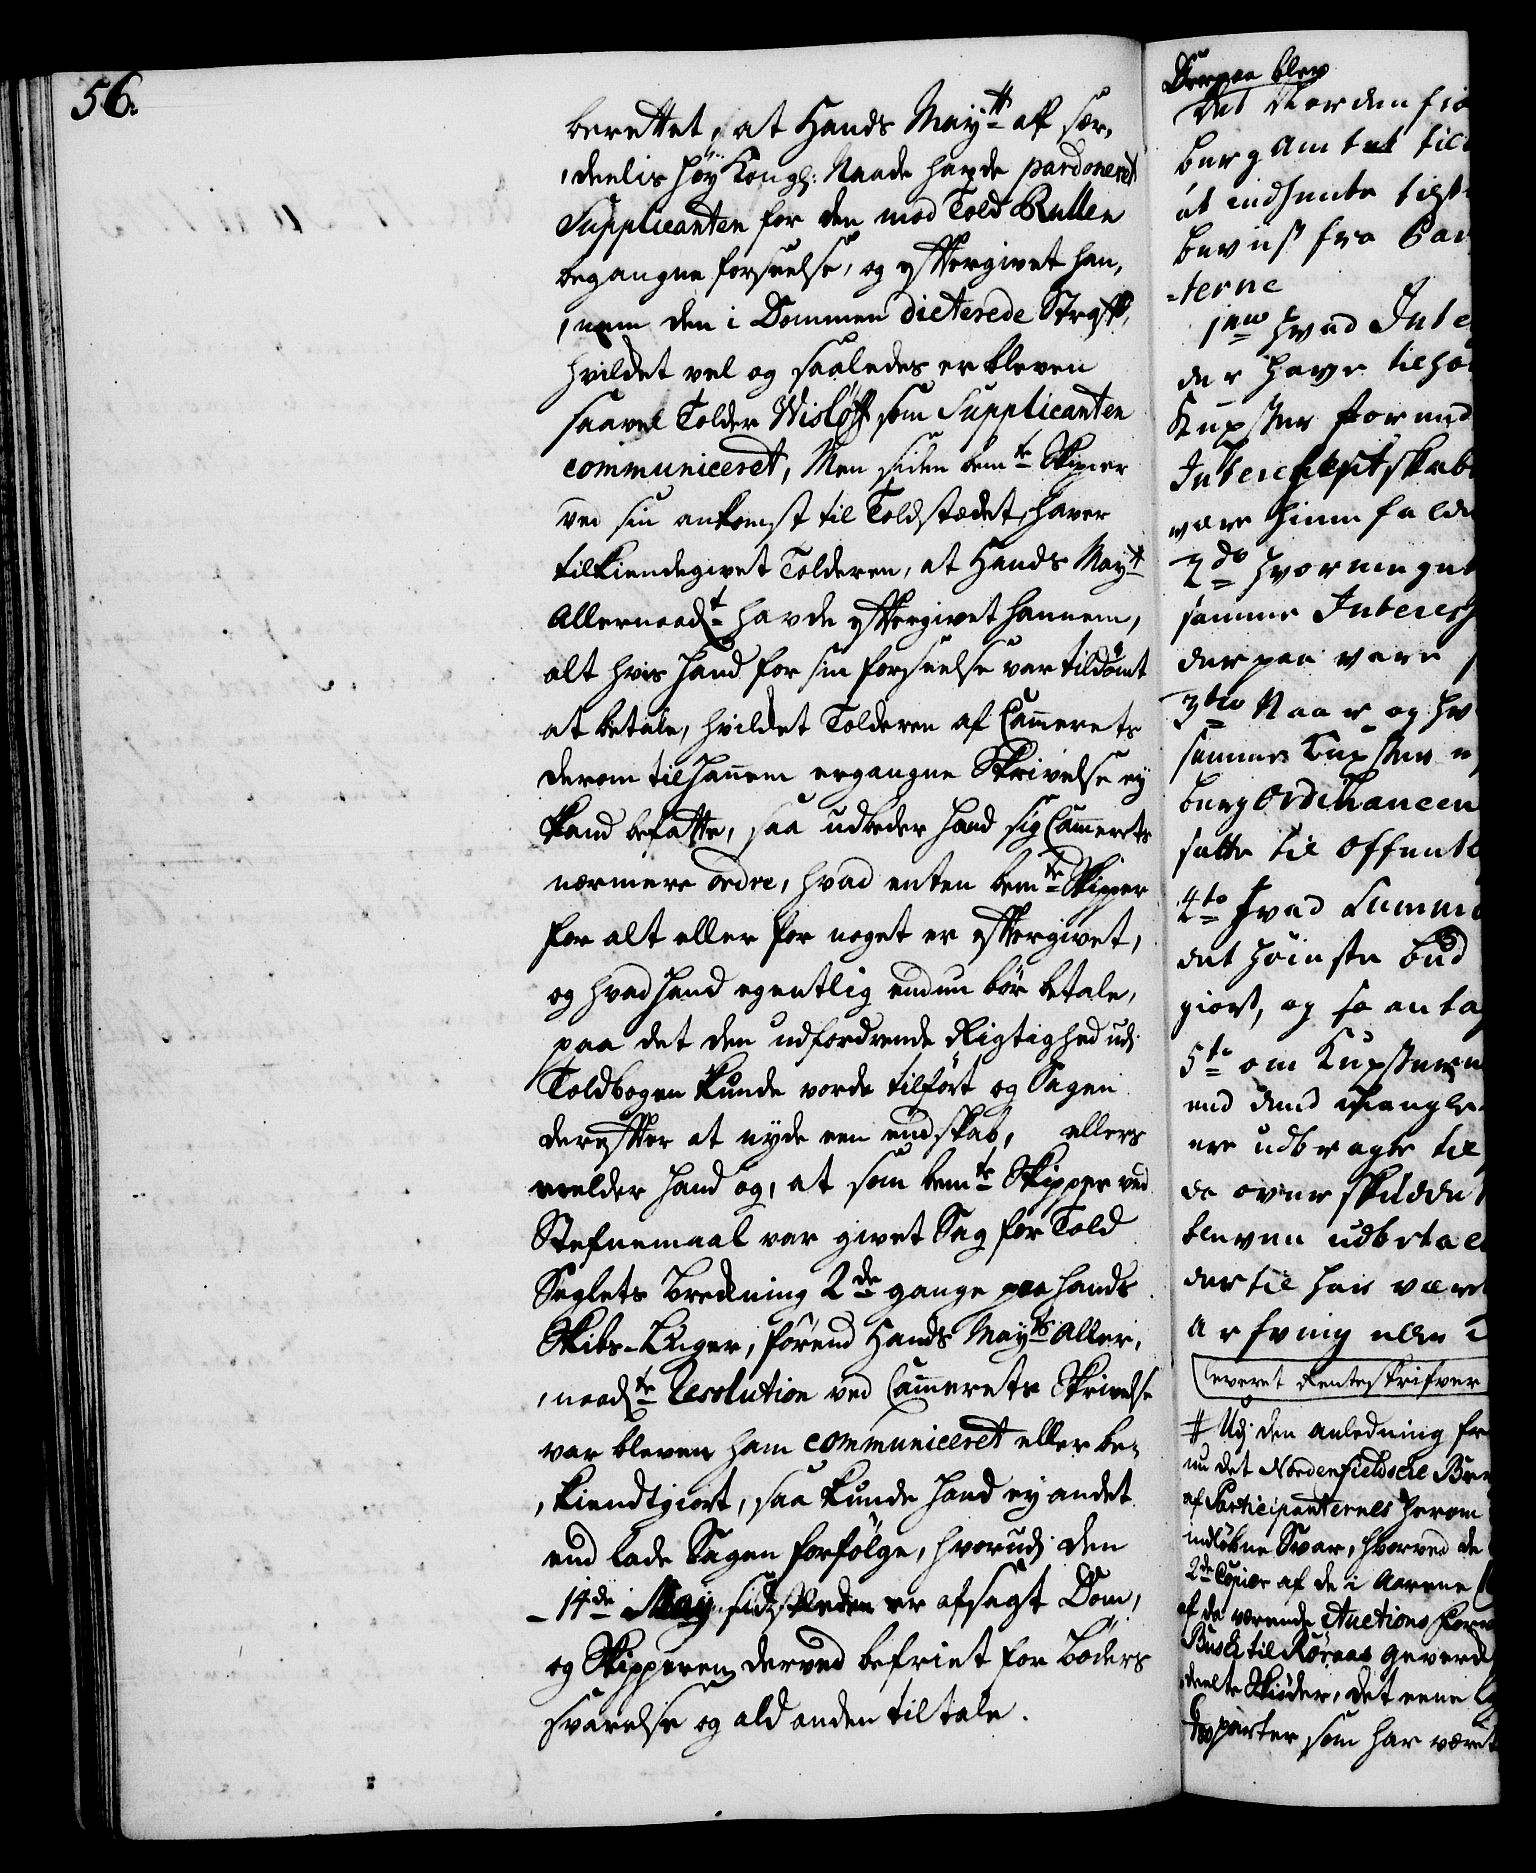 56.
berettet, at Hands Maytt af sær,
,deelis høy Kongl: Naade hafde pardoneret
Supplicanten for den mod Told Rullen
begangne forseelse, og eftergivet han,
,nem den i Dommen dicterede Straff,
hvilcket vel og saaledes er bleven
saavel Tolder Wisløff som Supplicanten
communiceret, Men siden bemte Skipper
ved sin ankomst til Toldstædet, haver
tilkiendegivet Tolderen, at Hands Maytt
Allernaadt havde eftergivet hannem,
alt hvis hand for sin forseelse var tildømt
at betale, hvilcket Tolderen af Cammerets
derom til hannem ergangne Skrivelse ey
kand befatte, saa udbeder hand sig Cammerets
nærmere ordre, hvad enten bemte Skipper
for alt eller for noget er eftergivet,
og hvad hand egentlig endnu bør betale,
paa det den udfordrende Rigtighed udj
Toldbogen kunde vorde tilført og Sagen
derefter at nyde een endskab, ellers
melder hand og, at som bemte Skipper ved
Stefnemaal var givet Sag for Told
Seglets Breckning 2de gange paa hands
Skibs-Luger, førend Hands Mayts Aller,
,naadte Resolution ved Cammerets Skrivelse
var bleven ham communiceret eller be,
,kiendtgiort, saa kunde hand ey andet
end lade Sagen forfølge, hvorudj den
14de May sidstleden er afsagt Dom,
og Skipperen derved befriet for Bøders
svarelse og ald anden tiltale.
Derpaa blev
Det Nordenfie
berg Amtet tili
at indhente tilst
beviis fra Par
-terne
1mo hvad Inte
der have tilhø
Kuxster forend
Interessentskab
være hiemfalden
2do hvormeget
samme Interess
derpaa være
3tio Naar og hv
sammes Kuxster e
berg Ordinancen
satte til offentl
4to hvad Summa
det høieste bud
giort, og so antag
5te om Kuxsterne
end dend mangle
ere udbragte til
da overskuddet
bleven udbetalt
dertil har været
Arfving eller
Leveret Renteskrifver
# Udj den anledning fr
nu det Nordenfieldsche Ber
af Participanternes herom
indløbne Svar, hvorved de
2de Copier af de i Aarene
af da værende Auctions For
Busch til Røraas Geverck
deelte Skiøder, det eene
parter som har været